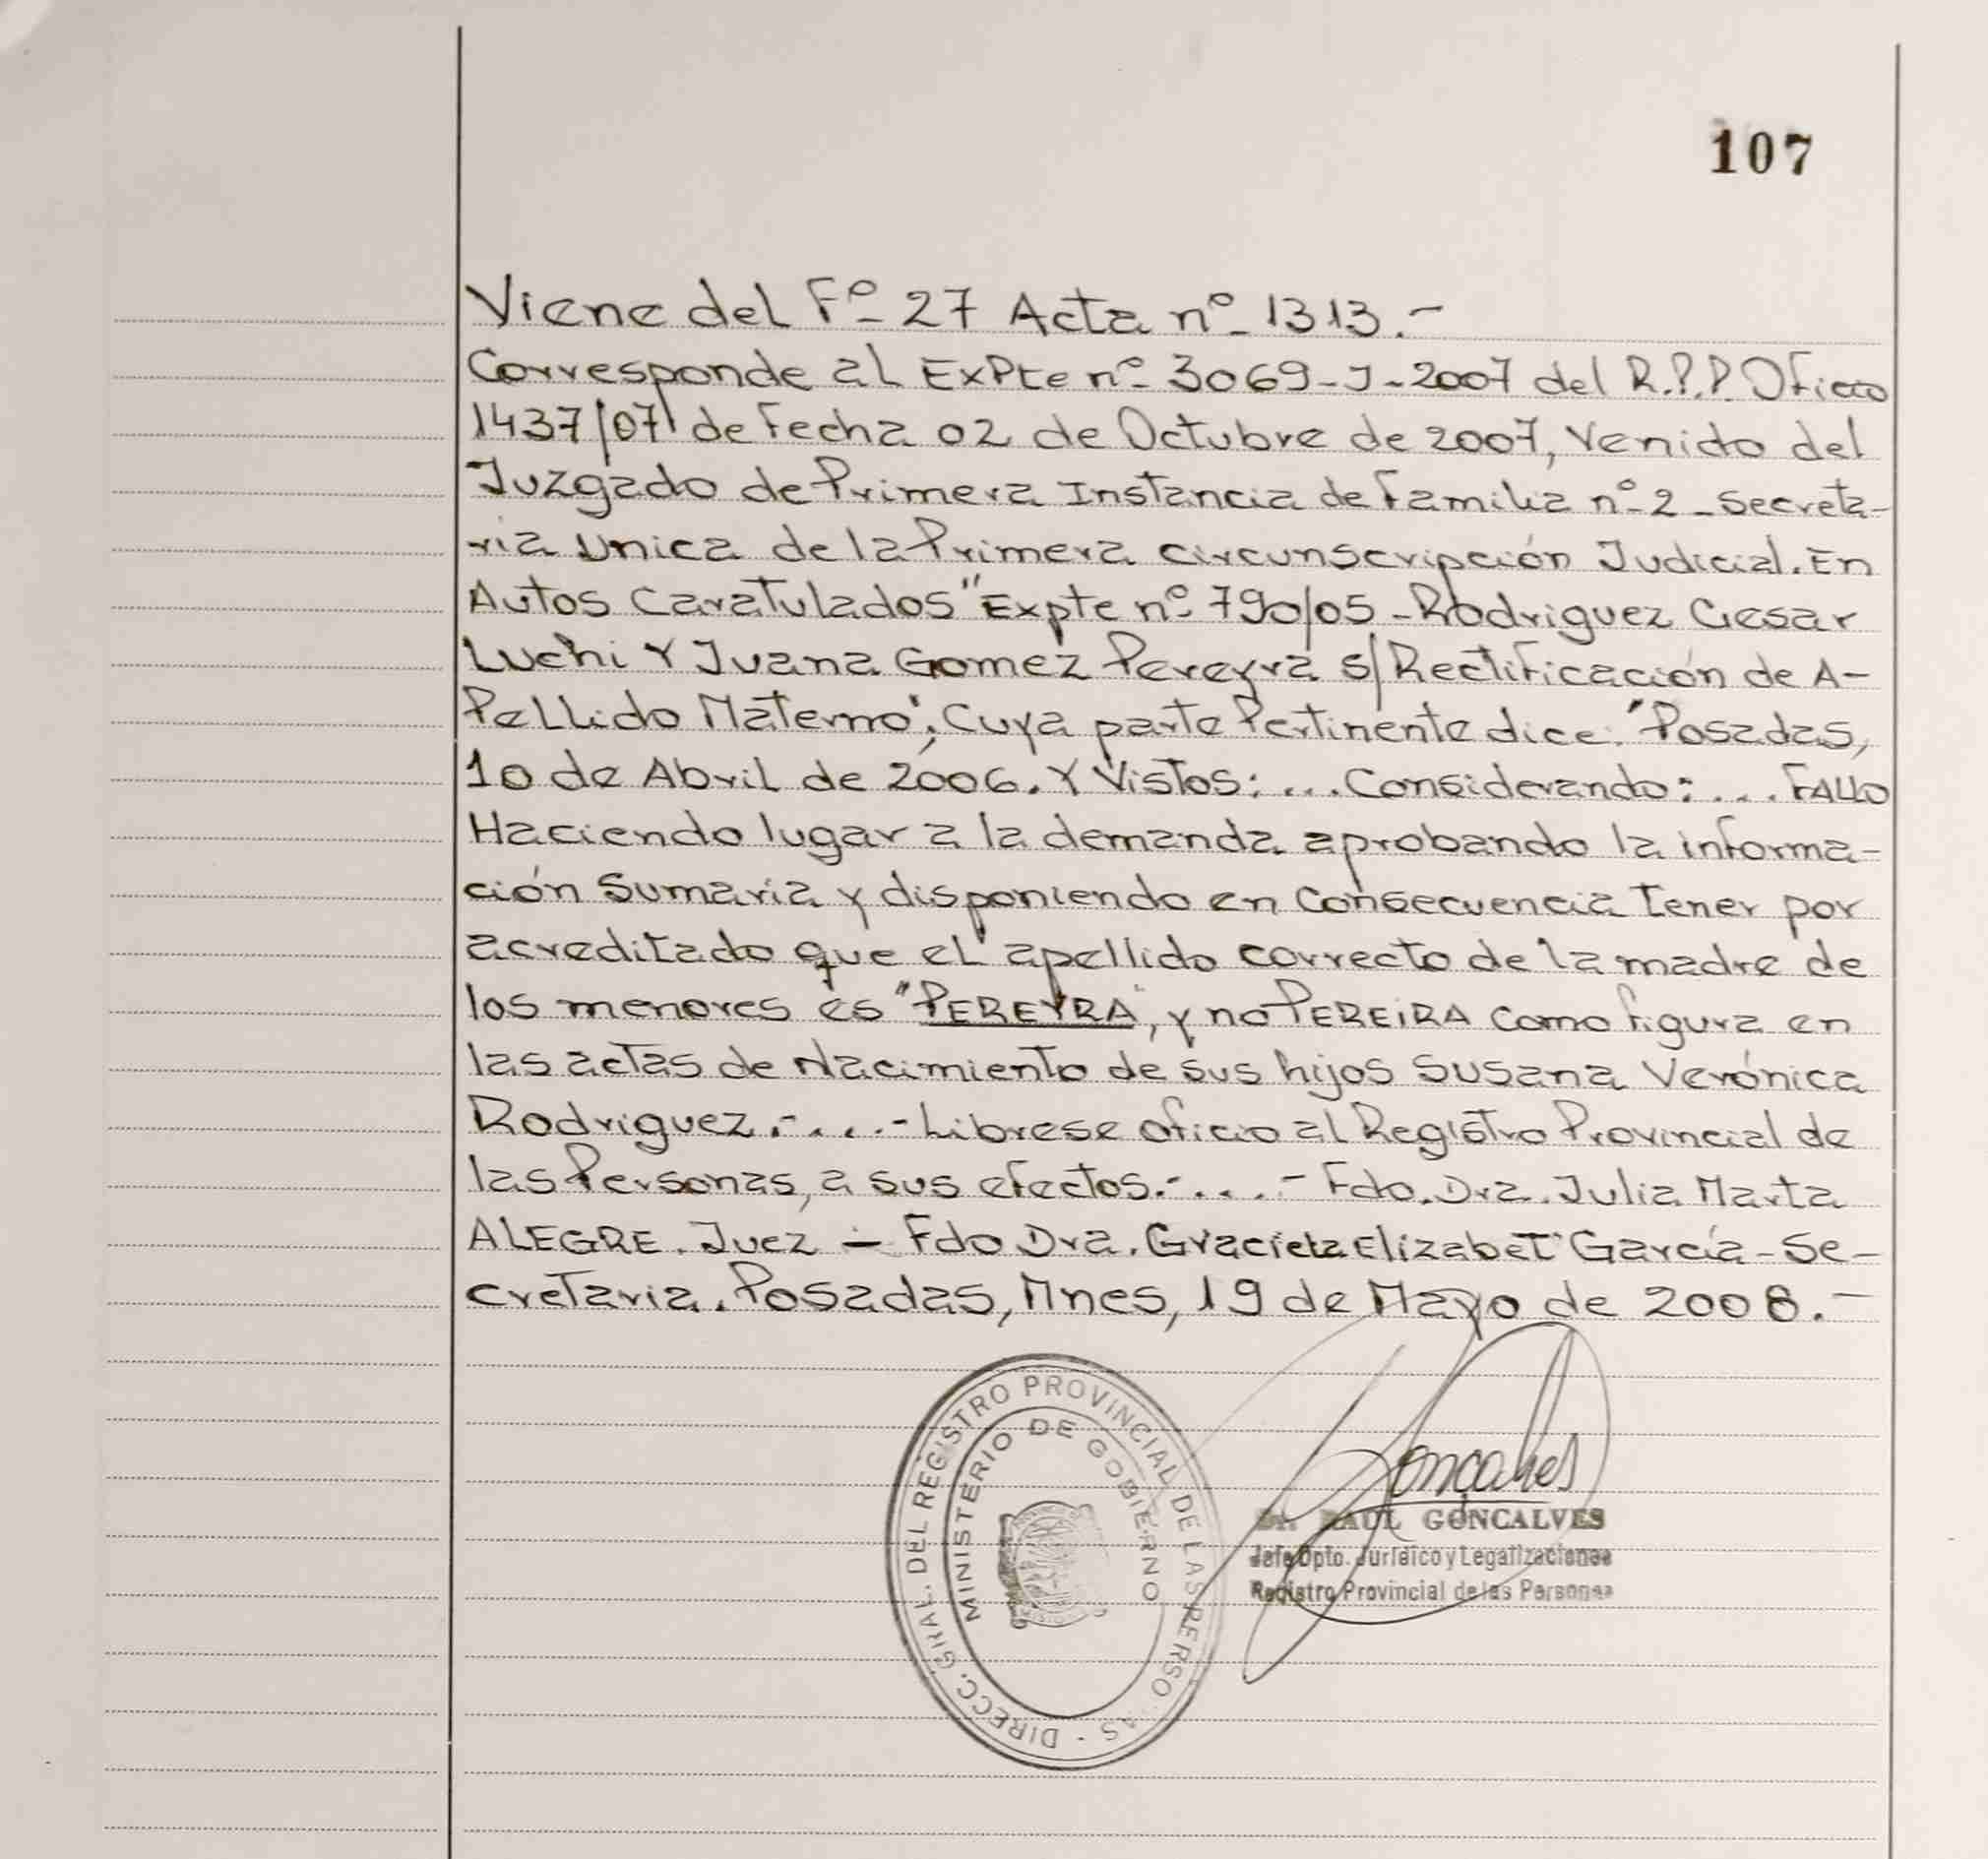 107
Viene del Fº 27 Acta nº 1313.-
Corresponde al ExPte nº 3069-J-2007 del R.P.P. Oficio
1437/07 de Fecha 02 de Octubre de 2007, Venido del
Juzgado de Primera Instancia de Familia nº 2 - Secreta-
ria Unica de la Primera circunscripción Judicial. En
Autos Caratulados "Expte nº 790/05 - Rodriguez Cesar
Luchi Y Juana Gomez Pereyra s/ Rectificación de A-
Pellido Materno", Cuya parte Pertinente dice: "Posadas,
10 de Abril de 2006. Y Vistos: ... Considerando: ... FALLO
Haciendo lugar a la demanda aprobando la informa-
ción Sumaria y disponiendo en Consecuencia Tener por
acreditado que el apellido correcto de la madre de
los menores es "PEREYRA", y no PEREiRA como figura en
las actas de Nacimiento de sus hijos Susana Verónica
Rodriguez.-...- Librese oficio al Registro Provincial de
las Personas, a sus efectos.-...- Fdo. Dra. Julia Marta
ALEGRE. Juez - Fdo Dra. Graciela Elizabet García - Se-
cretaria. Posadas, Mnes, 19 de Mayo de 2008.-
DIRECC. GRAL. DEL REGISTRO PROVINCIAL DE LAS PERSONAS
MINISTERIO DE GOBIERNO
Goncalves
Dr. RAUL GONCALVES
Jefe Dpto. Jurídico y Legalizaciones
Registro Provincial de las Personas